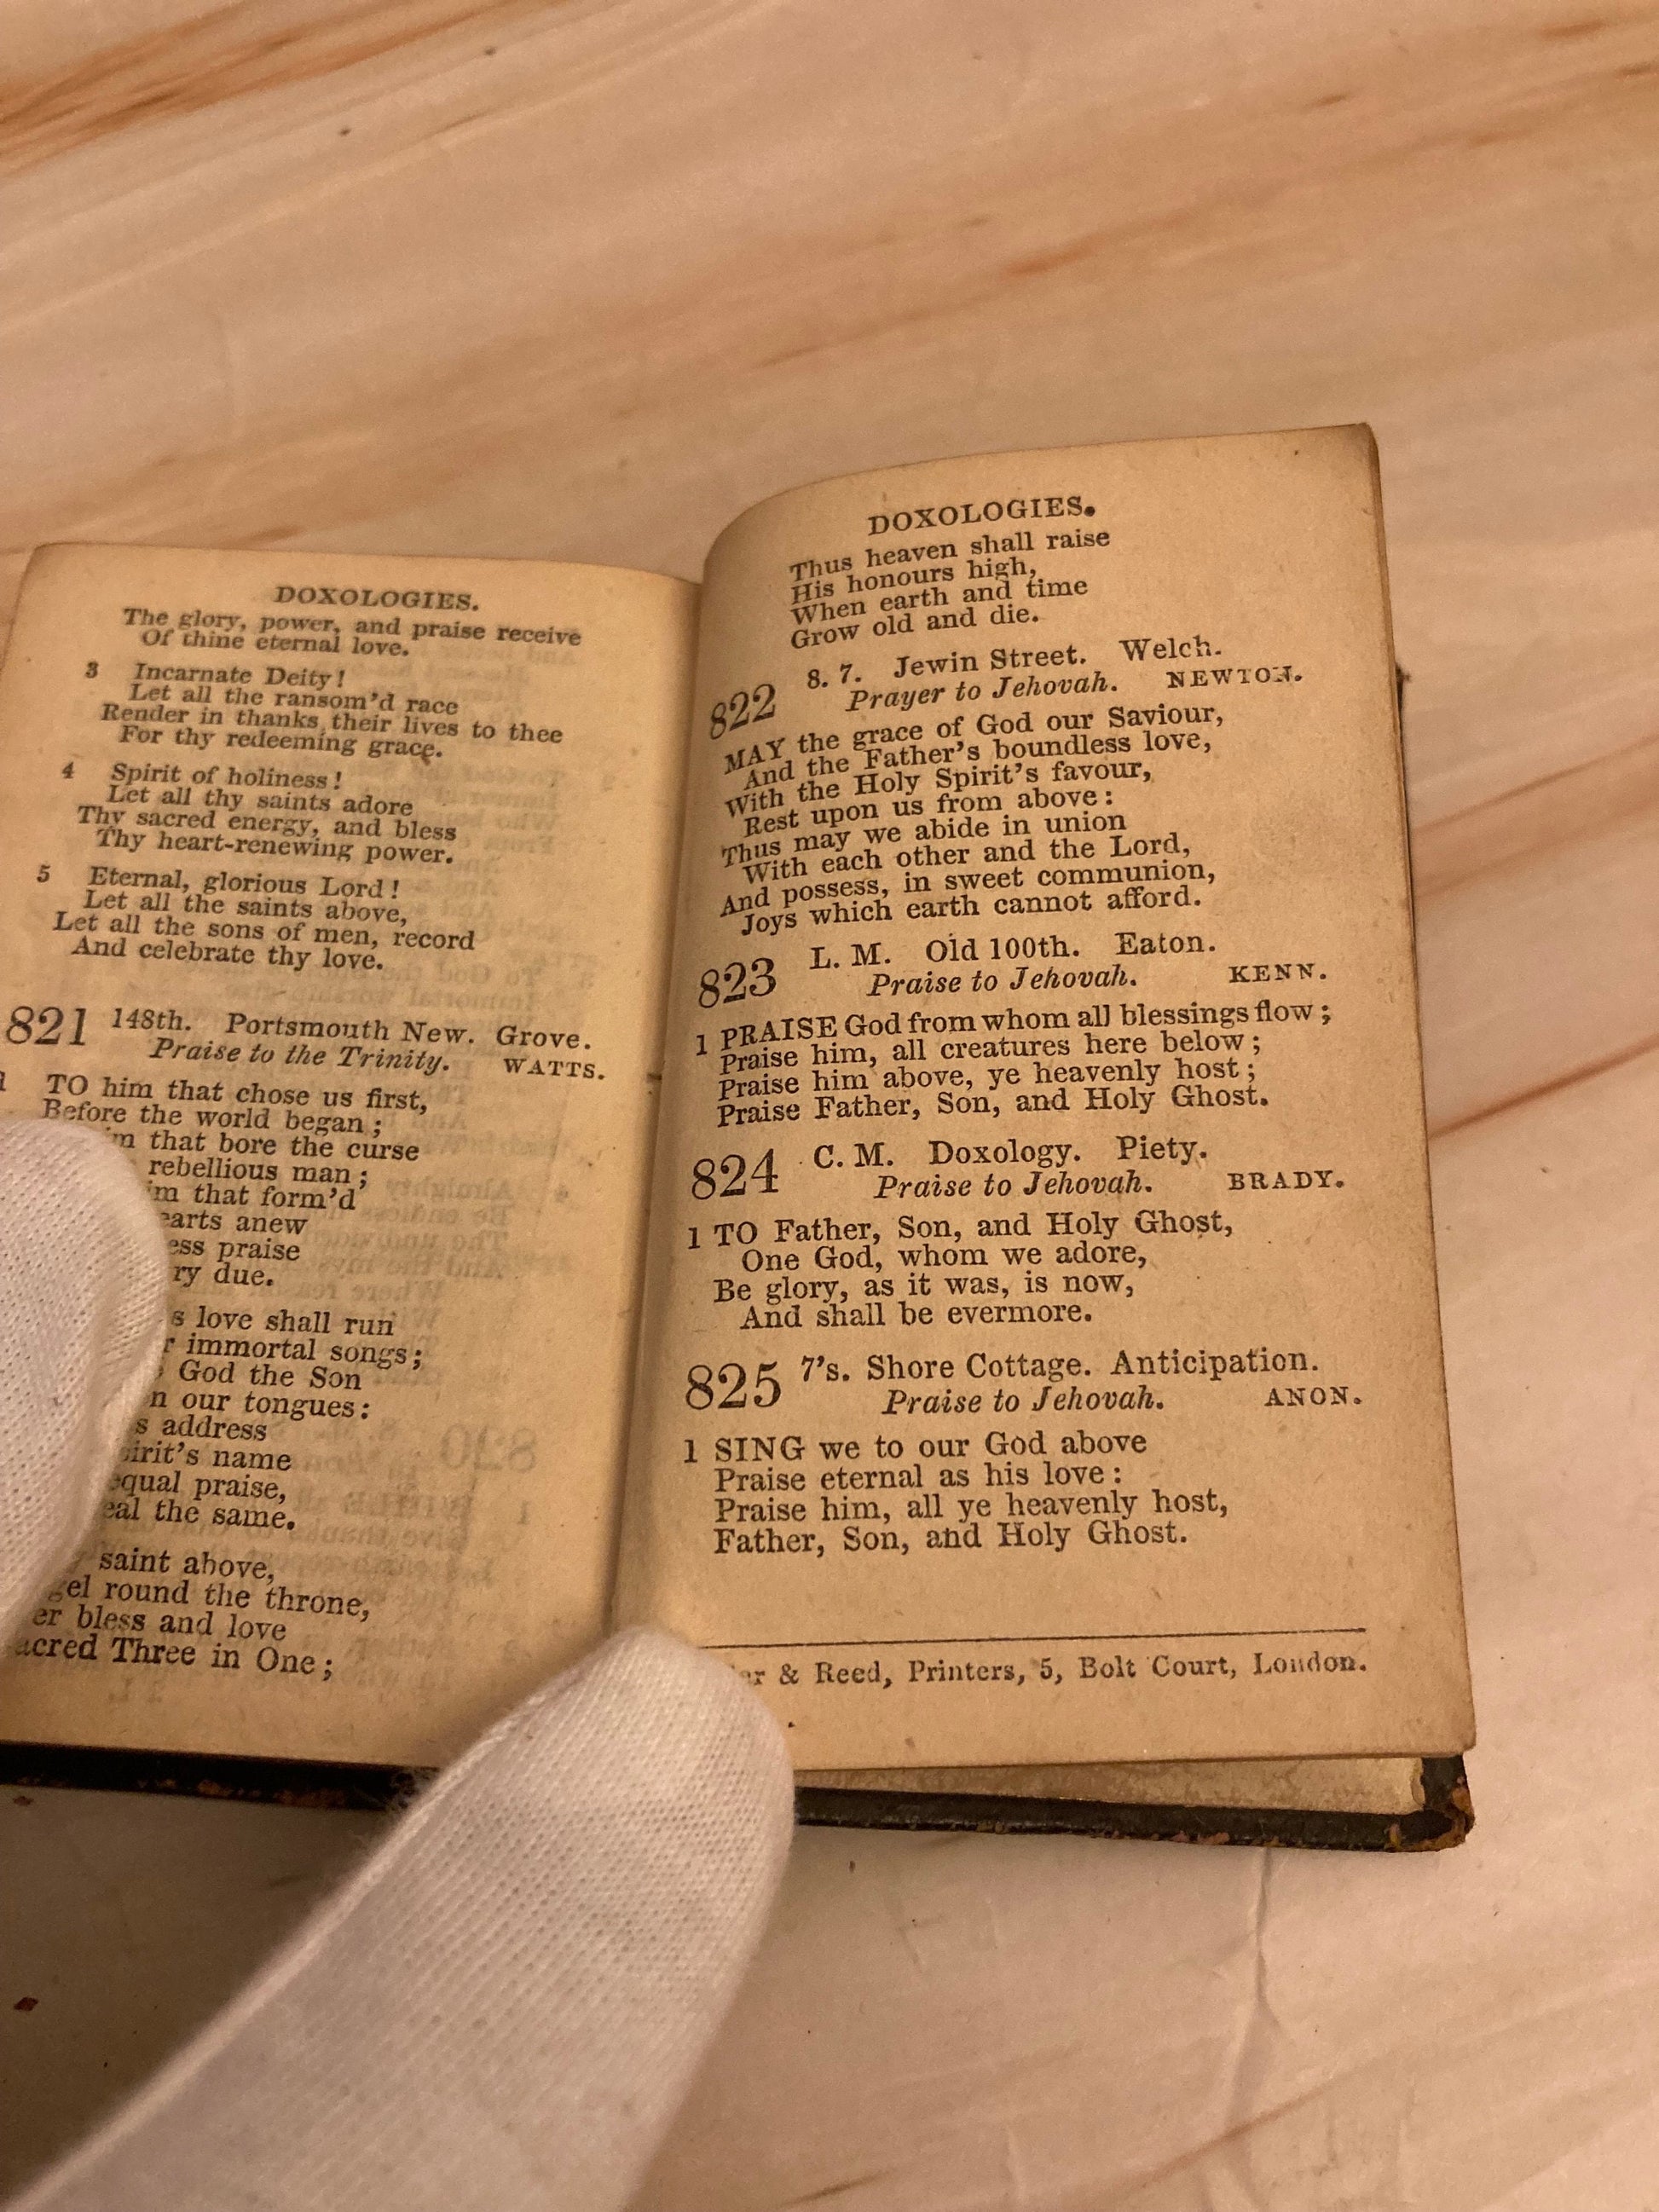 DOXOLOGIES.
The glory, power, and praise receive
Of thine eternal love.
3 Incarnate Deity!
Let all the ransom'd race
Render in thanks their lives to thee
For thy redeeming grace.
4 Spirit of holiness!
Let all thy saints adore
Thy sacred energy, and bless
Thy heart-renewing power.
5 Eternal, glorious Lord!
Let all the saints above,
Let all the sons of men, record
And celebrate thy love.
821 148th. Portsmouth New. Grove.
Praise to the Trinity. WATTS.
1 TO him that chose us first,
Before the world began;
that bore the curse
rebellious man;
that form'd
anew
praise
due.
love shall run
immortal songs;
God the Son
our tongues:
address
name
equal praise,
the same.
saint above,
round the throne,
bless and love
Three in One;
DOXOLOGIES.
Thus heaven shall raise
His honours high,
When earth and time
Grow old and die.
822 8. 7. Jewin Street. Welch.
Prayer to Jehovah. NEWTON.
MAY the grace of God our Saviour,
And the Father's boundless love,
With the Holy Spirit's favour,
Rest upon us from above:
Thus may we abide in union
With each other and the Lord,
And possess, in sweet communion,
Joys which earth cannot afford.
823 L. M. Old 100th. Eaton.
Praise to Jehovah. KENN.
1 PRAISE God from whom all blessings flow;
Praise him, all creatures here below;
Praise him above, ye heavenly host;
Praise Father, Son, and Holy Ghost.
824 C. M. Doxology. Piety.
Praise to Jehovah. BRADY.
1 TO Father, Son, and Holy Ghost,
One God, whom we adore,
Be glory, as it was, is now,
And shall be evermore.
825 7's. Shore Cottage. Anticipation.
Praise to Jehovah. ANON.
1 SING we to our God above
Praise eternal as his love:
Praise him, all ye heavenly host,
Father, Son, and Holy Ghost.
& Reed, Printers, 5, Bolt Court, London.